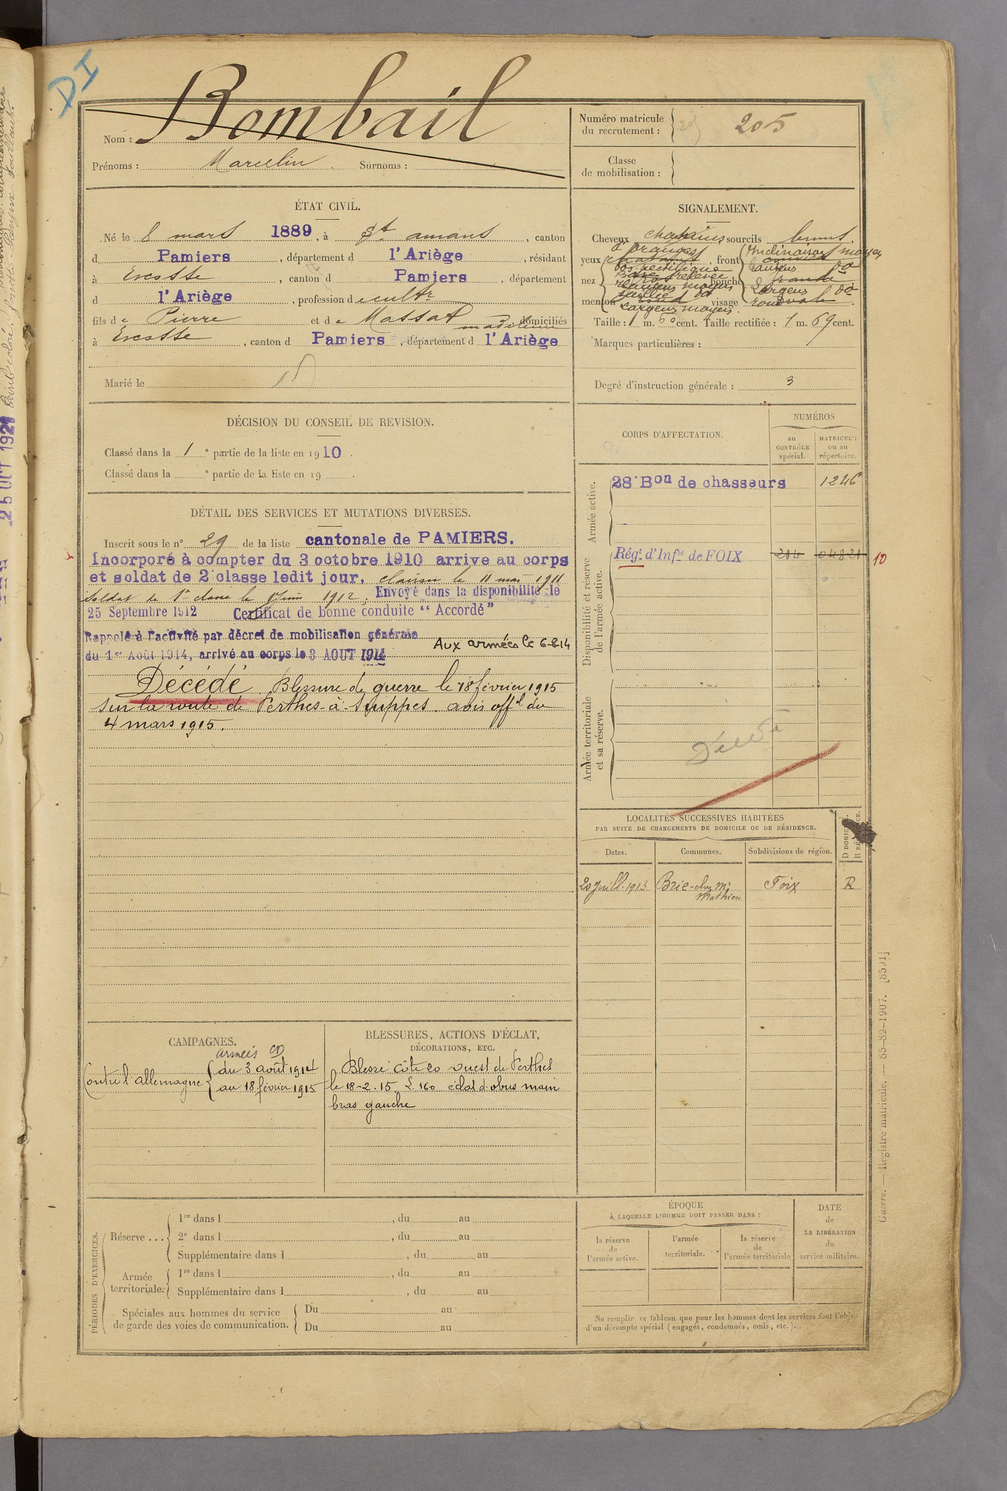 DI
Nom : Bombail
Prénoms : Marcelin Surnoms :
Numéro matricule
du recrutement : 205
Classe
de mobilisation :
ÉTAT CIVIL.
Né le 8 mars 1889, à St amans, canton
d Pamiers, département d l'Ariège, résidant
à Escosse, canton d Pamiers, département
d l'Ariège, profession de cultr
fils de Pierre et de Massat madeleine domiciliés
à Escosse, canton d Pamiers, département d l'Ariège
Marié le
SIGNALEMENT.
Cheveux chatains sourcils
yeux front
nez bouche
menton visage
Taille : 1 m. cent. Taille rectifiée : 1 m. 69 cent.
Marques particulières :
Degré d'instruction générale : 3
DÉCISION DU CONSEIL DE REVISION.
Classé dans la 1e partie de la liste en 1910.
Classé dans la e partie de la liste en 19
DÉTAIL DES SERVICES ET MUTATIONS DIVERSES.
Inscrit sous le n° 29 de la liste cantonale de PAMIERS.
Incorporé à compter du 3 octobre 1910 arrive au corps
et soldat de 2e classe ledit jour, clairon le 11 mai 1911
soldat de 1e classe le 1er Juin 1912. Envoyé dans la disponibilité le
25 Septembre 1912 Certificat de bonne conduite "Accordé"
Rappelé à l'activité par décret de mobilisation générale
du 1er Août 1914, arrivé au corps le 3 AOUT 1914 Aux armées le 6-8-14
Décédé. Blessure de guerre le 18 février 1915
sur la route de Perthes-à-Suippes. avis offl du
4 mars 1915.
CORPS D'AFFECTATION.
NUMÉROS
au
CONTRÔLE
spécial.
MATRICULE
ou au
répertoire.
Armée active.
28e Bon de chasseurs 1246
Disponibilité et réserve
de l'armée active.
Régt d'Infie de FOIX 10
Armée territoriale
et sa réserve.
Décédé
LOCALITÉS SUCCESSIVES HABITÉES
PAR SUITE DE CHANGEMENTS DE DOMICILE OU DE RÉSIDENCE.
Dates. Communes. Subdivisions de région.
20 Juill. 1913 Brie-chez Mr Mathieu Foix R
CAMPAGNES.
armées
Contre l'allemagne du 3 août 1914
au 18 février 1915
BLESSURES, ACTIONS D'ÉCLAT,
DÉCORATIONS, ETC.
Blessé côte 60 ouest de Perthes
le 18-2-15 éclat d'obus main
bras gauche
PÉRIODES D'EXERCICES.
Réserve ...
1re dans l , du au
2e dans l , du au
Supplémentaire dans l , du au
Armée
territoriale.
1re dans l , du au
Supplémentaire dans l , du au
Spéciales aux hommes du service
de garde des voies de communication.
Du au
Du au
ÉPOQUE
À LAQUELLE L'HOMME DOIT PASSER DANS :
la réserve
de
l'armée active.
l'armée
territoriale.
la réserve
de
l'armée territoriale
DATE
de
LA LIBÉRATION
du
service militaire.
Ne remplir ce tableau que pour les hommes dont les services font l'objet
d'un décompte spécial (engagés, condamnés, omis, etc.).
Guerre. — Registre matricule. — 88-89-1907. [8591]